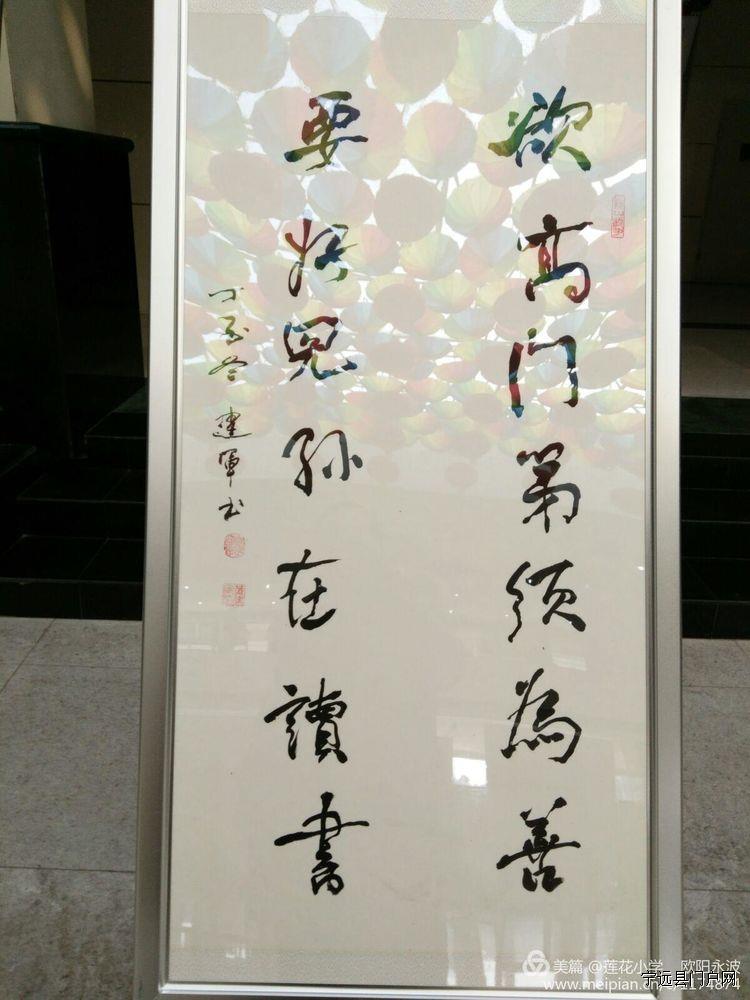 欲高门第须為善
要好兒孫在讀書
丁酉冬 建軍书
美篇 @莲花小学 欧阳永波
www.meipian.cn
宁远县门户网